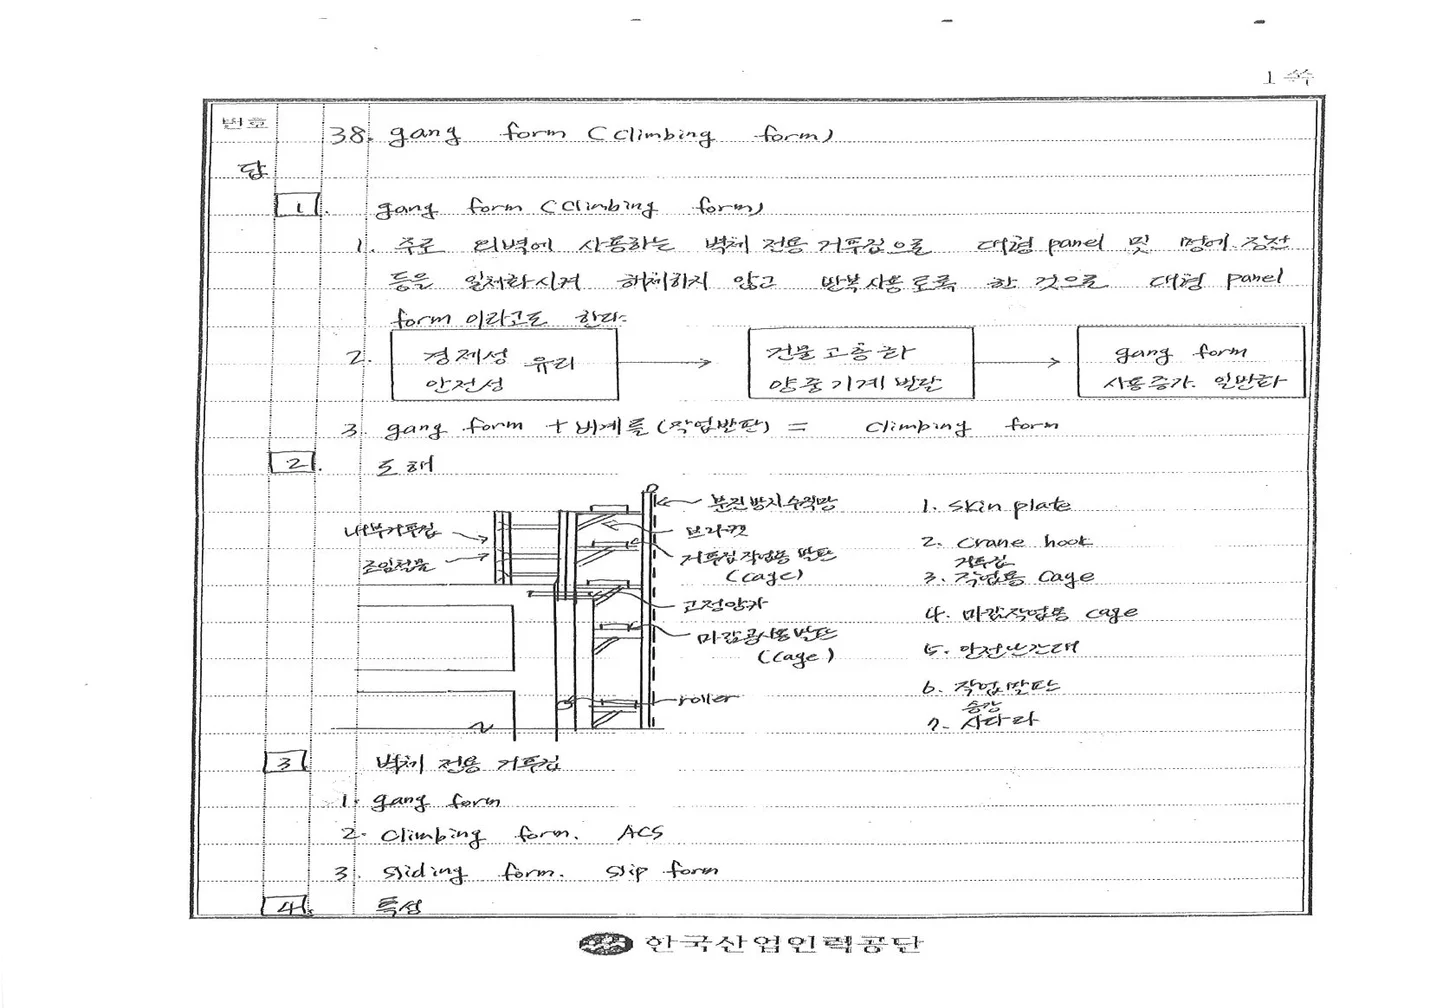 1 쪽
번호
38. gang form (climbing form)
답
1. gang form (climbing form)
1. 주로 외벽에 사용하는 벽체 전용 거푸집으로 대형 panel 및 멍에. 장선
등을 일체화시켜 해체하지 않고 반복사용토록 한 것으로 대형 panel
form 이라고도 한다.
2. 경제성 안전성 유리 → 건물 고층화 양중기계 발달 → gang form 사용증가. 일반화
3. gang form + 비계틀 (작업발판) = climbing form
2. 도해
내부거푸집
조임철물
분진방지수직망
브라켓
거푸집작업용 발판
(cage)
고정앙카
마감공사용발판
(cage)
roller
1. skin plate
2. crane hook
3. 거푸집 작업용 cage
4. 마감작업용 cage
5. 안전난간대
6. 작업발판
7. 승강 사다리
3. 벽체 전용 거푸집
1. gang form
2. climbing form. ACS
3. sliding form. slip form
4. 특성
한국산업인력공단